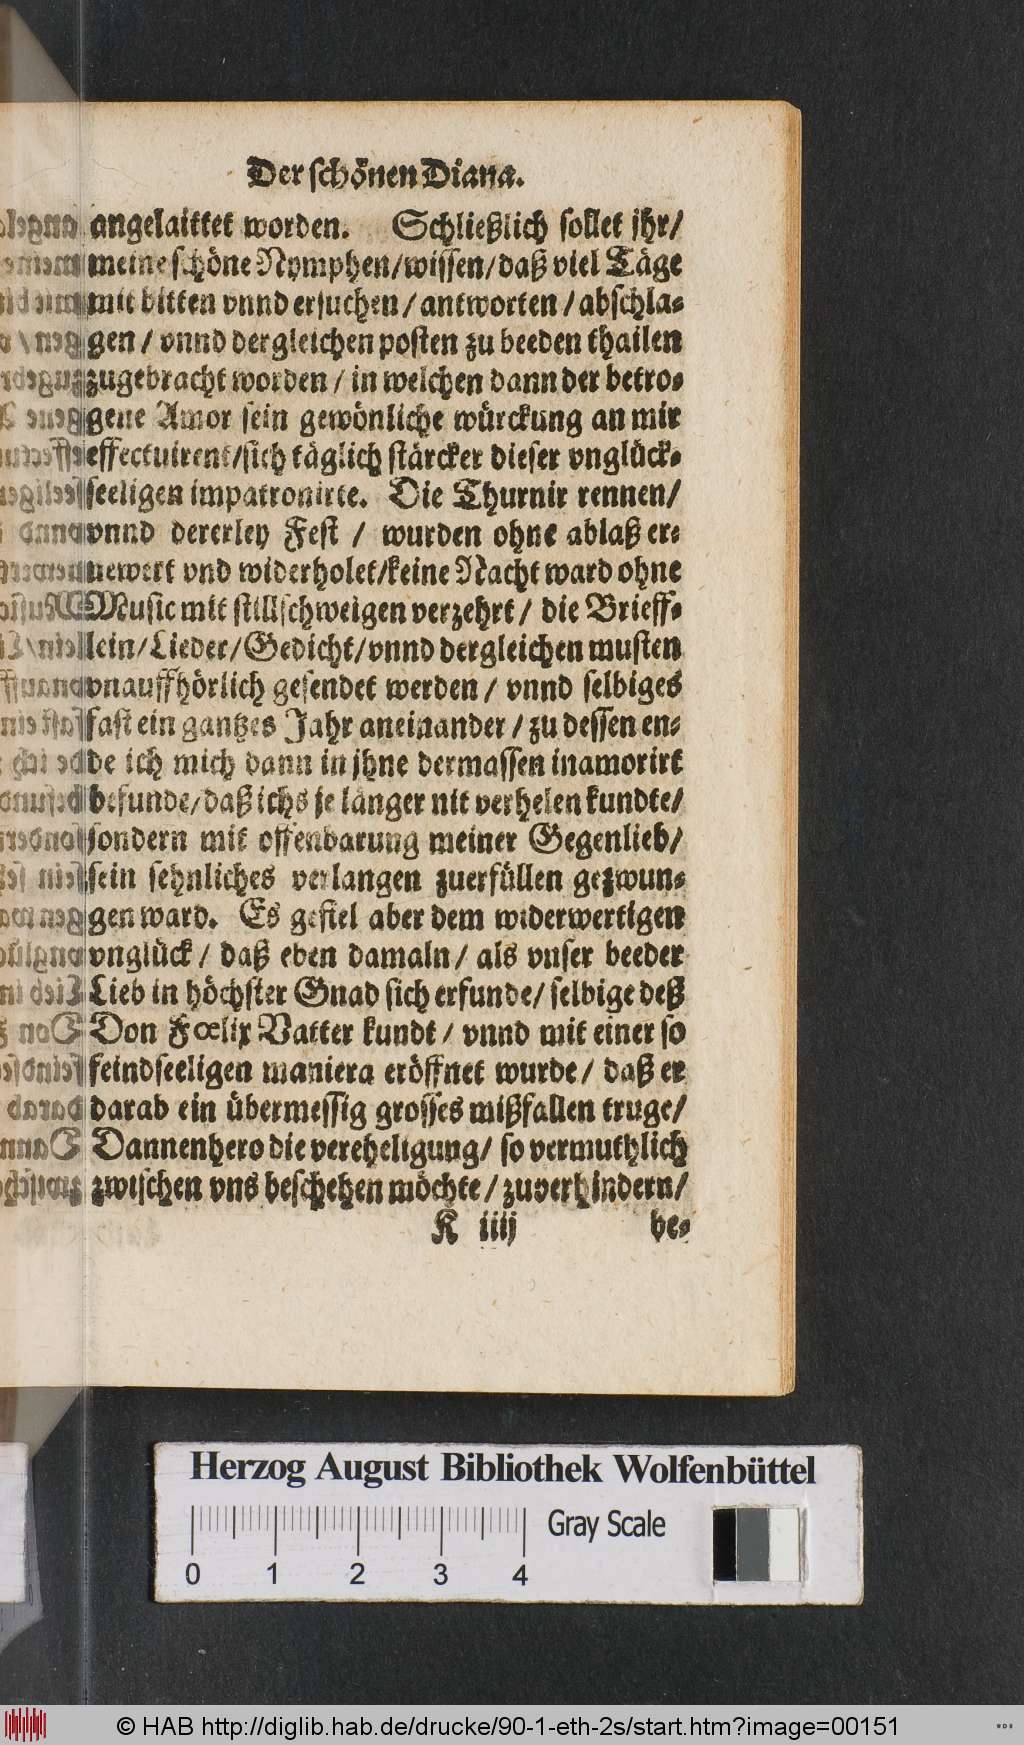 Der schönen Diana.
angelaittet worden. Schließlich sollet jhr/
meine schöne Nymphen/wissen/daß viel Täge
mit bitten vnnd ersuchen/antworten/abschla-
gen/vnnd dergleichen posten zu beeden thailen
zugebracht worden/in welchen dann der betro-
gene Amor sein gewönliche würckung an mir
effectuirent/sich täglich stärcker dieser vnglück-
seeligen impatronirte. Die Thurnir rennen/
vnnd dererley Fest/ wurden ohne ablaß er-
newert vnd widerholet/keine Nacht ward ohne
Music mit stillschweigen verzehrt/ die Brieff-
lein/Lieder/Gedicht/vnnd dergleichen musten
vnauffhörlich gesendet werden/ vnnd selbiges
fast ein gantzes Jahr aneinander/ zu dessen en-
de ich mich dann in jhne dermassen inamorirt
befunde/daß ichs je länger nit verhelen kundte/
sondern mit offenbarung meiner Gegenlieb/
sein sehnliches verlangen zuerfüllen gezwun-
gen ward. Es gefiel aber dem widerwertigen
vnglück/ daß eben damaln/ als vnser beeder
Lieb in höchster Gnad sich erfunde/ selbige deß
Don Fœlix Vatter kundt/ vnnd mit einer so
feindseeligen maniera eröffnet wurde/ daß er
darab ein übermessig grosses mißfallen truge/
Dannenhero die vereheligung/ so vermuthlich
zwischen vns beschehen möchte/ zuverhindern/
K iiij be-
Herzog August Bibliothek Wolfenbüttel
Gray Scale
0 1 2 3 4
© HAB http://diglib.hab.de/drucke/90-1-eth-2s/start.htm?image=00151